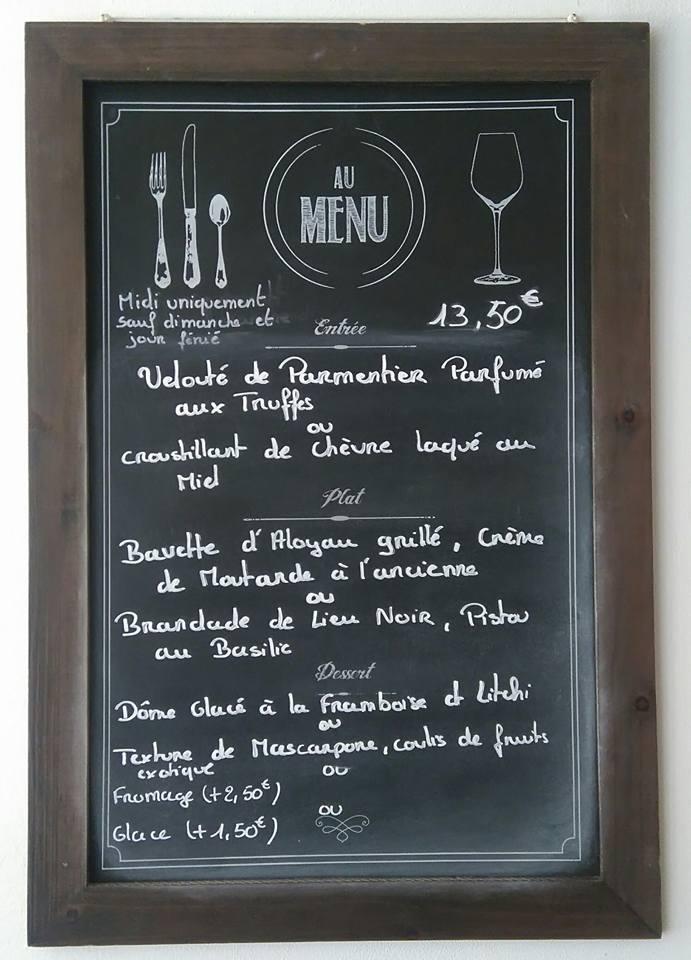 AU
MENU
Midi uniquement
sauf dimanche et
jour férié
13,50€
Entrée
Velouté de Parmentier Parfumé
aux Truffes
ou
croustillant de chèvre laqué au
Miel
Plat
Bavette d'Aloyau grillé, Crème
de Moutarde à l'ancienne
ou
Brandade de Lieu Noir, Pistou
au Basilic
Dessert
Dôme Glacé à la Framboise et Litchi
ou
Texture de Mascarpone, coulis de fruits
exotique
ou
Fromage (+2,50€)
ou
Glace (+1,50€)